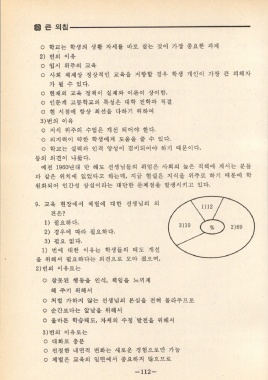 큰 외침
○ 학교는 학생의 생활 자세를 바로 잡는 것이 가장 중요한 과제
2) 번의 이유
○ 입시 위주의 교육
○ 사회 체제상 정상적인 교육을 저항할 경우 학생 개인이 가장 큰 피해자
가 될 수 있다.
○ 현재의 교육 정책이 실제와 이론이 상이함.
○ 인문계 고등학교의 특성은 대학 진학과 직결
○ 현 시점에 항상 최선을 다하기 위하여
3)번의 이유
○ 지식 위주의 수업은 개선 되어야 한다.
○ 의지력이 약한 학생에게 도움을 줄 수 있다.
○ 학교는 실력과 인격 양성이 겸비되어야 하기 때문이다.
등의 의견이 나왔다.
예전 1960년대 만 해도 선생님들의 위엄은 사회의 높은 직책에 계시는 분들
과 같은 위치에 있었다고 하는데, 지금 현실은 지식을 위주로 하기 때문에 학
원화되어 인간성 상실이라는 대단한 문제점을 발생시키고 있다.
9. 교육 현장에서 체벌에 대한 선생님의 의
견은?
1) 필요하다.
2) 경우에 따라 필요하다.
3) 필요 없다.
1) 번에 대한 이유는 학생들의 태도 개선
을 위해서 필요하다는 의견으로 모아 졌으며,
2)번의 이유로는
○ 잘못된 행동을 인식, 책임을 느끼게
해 주기 위해서
○ 처벌 가하지 않는 선생님의 본심을 전혀 몰라주므로
○ 순간보다는 앞날을 위해서
○ 올바른 학습태도, 자세의 수정 발전을 위해서
3)번의 이유로는
○ 대화로 충분
○ 진정한 내면적 변화는 새로운 경험으로만 가능
○ 체벌은 교육의 일면에서 중요하지 않으므로
1)12
3)19
%
2)69
-112-